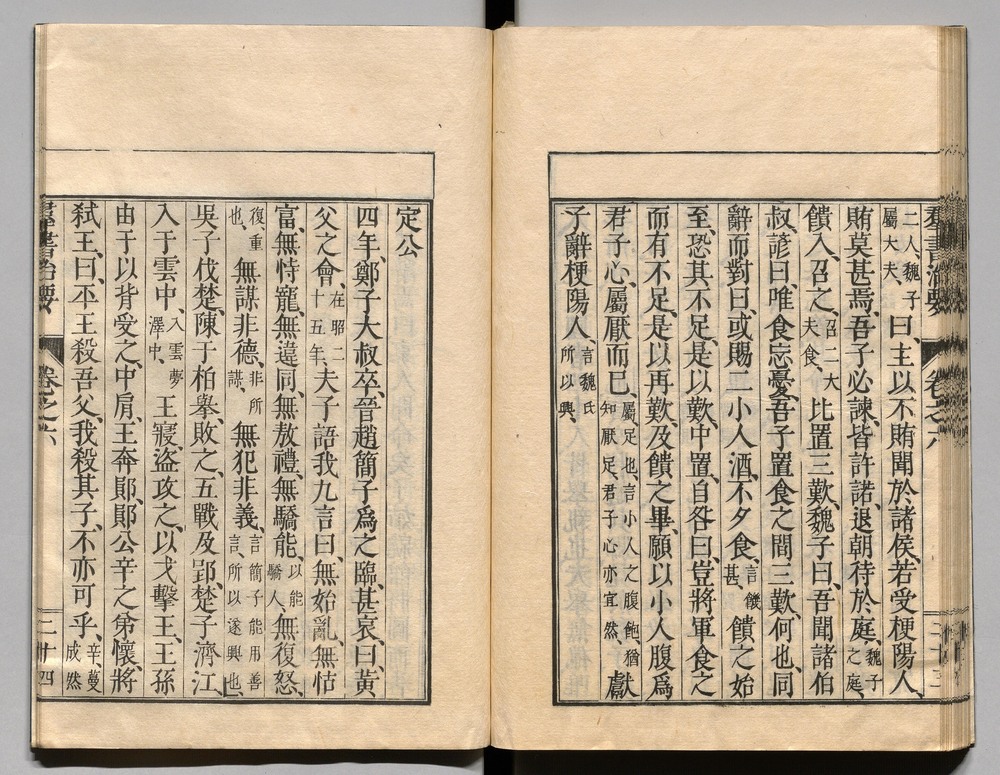 羣書治要 卷之六
二人、魏子屬大夫、曰、主以不賄聞於諸侯、若受梗陽人、
賄莫甚焉、吾子必諫、皆許諾、退朝待於庭、魏子之庭、
饋入、召之、召二大夫食、比置三歎、魏子曰、吾聞諸伯
叔、諺曰、唯食忘憂、吾子置食之間三歎、何也、同
辭而對曰、或賜二小人酒、不夕食、言饑甚、饋之始
至、恐其不足、是以歎、中置、自咎曰、豈將軍食之
而有不足、是以再歎、及饋之畢、願以小人腹爲
君子心、屬厭而已、屬足也、言小人之腹飽、猶知厭足、君子心亦宜然、獻
子辭梗陽人、言魏氏所以興、
定公
四年、鄭子大叔卒、晉趙簡子爲之臨、甚哀、曰、黃
父之會、在昭二十五年、夫子語我九言曰、無始亂、無怙
富、無恃寵、無違同、無敖禮、無驕能、以能驕人、無復怒、
復、重也、無謀非德、非所謀、無犯非義、言簡子能用善言、所以遂興也、
吳子伐楚、陳于柏擧、敗之、五戰及郢、楚子濟江、
入于雲中、入雲夢澤中、王寢、盜攻之、以戈擊王、王孫
由于以背受之、中肩、王奔鄖、鄖公辛之弟懷、將
弒王、曰、平王殺吾父、我殺其子、不亦可乎、辛、蔓成然
羣書治要 卷之六 二十四